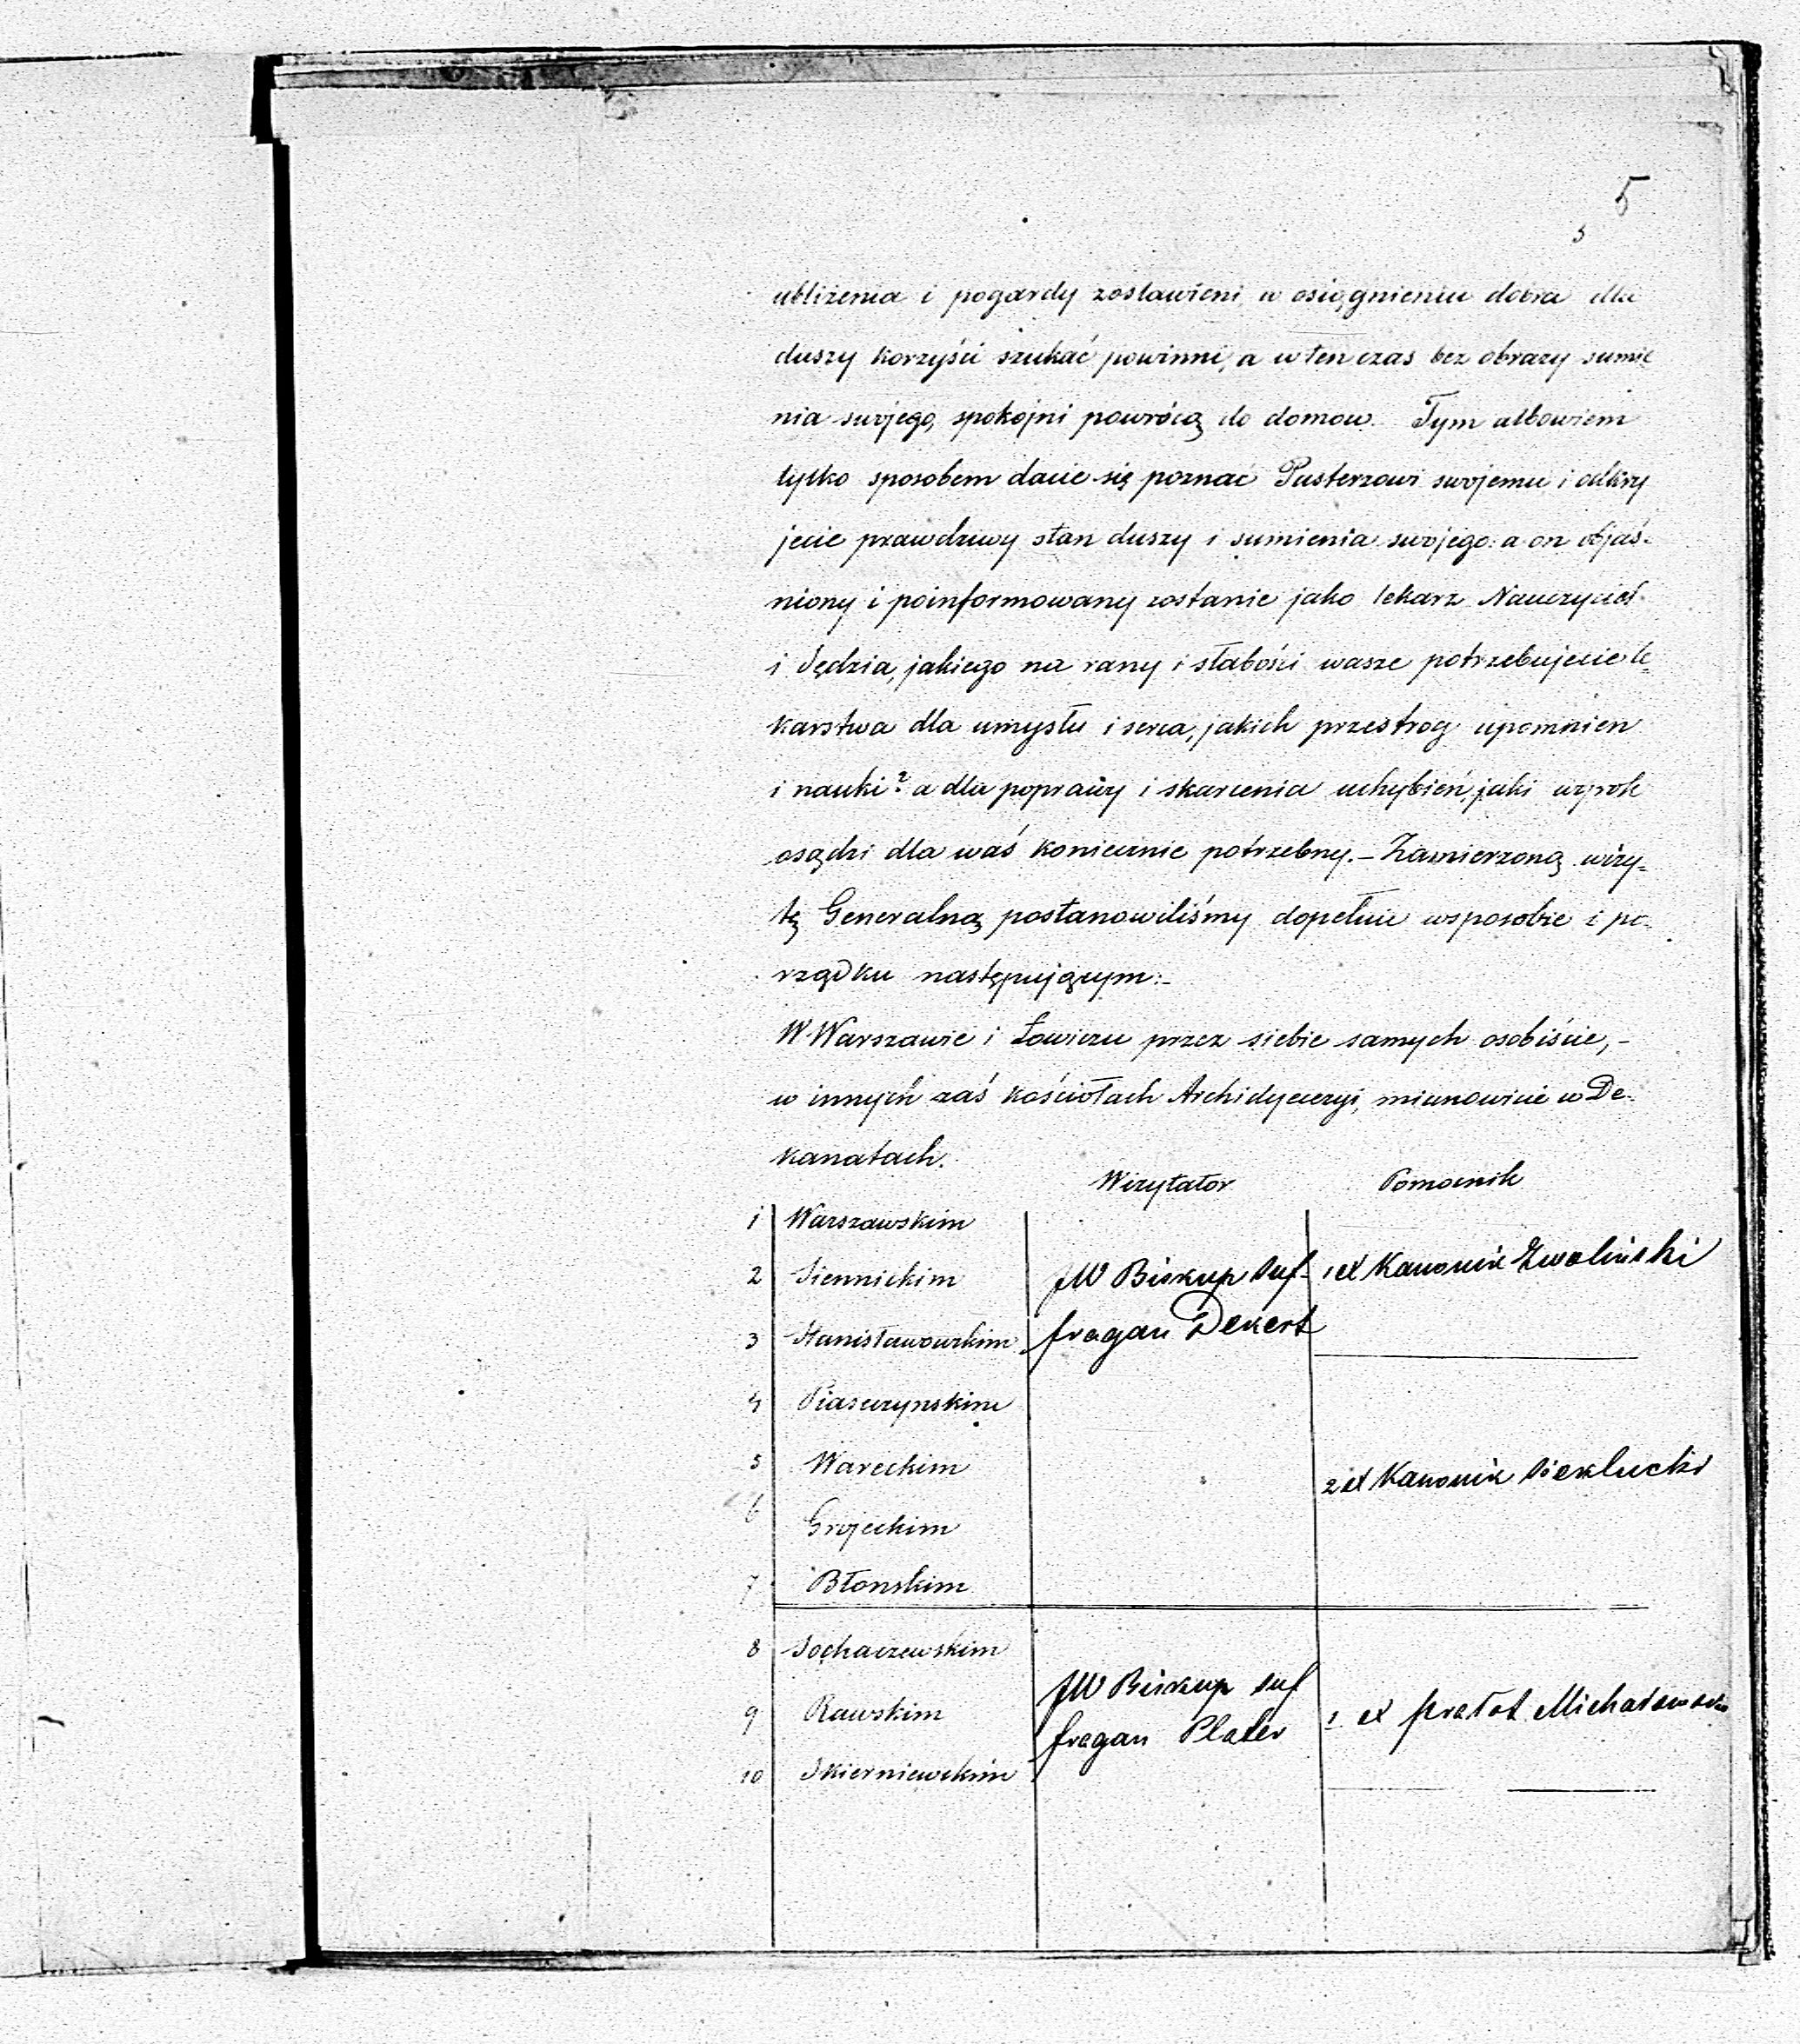 5
5
ubliżenia i pogardy zostawieni w osiągnieniu dobra dla
duszy korzyści szukać powinni, a w ten czas bez obrazy sumie
nia swojego, spokojni powrócą do domow. Tym albowiem
tylko sposobem dacie się poznać Pasterzowi swojemu i odkry
jecie prawdziwy stan duszy i sumienia swojego: a on objaś-
niony i poinformowany zostanie jako lekarz Nauczyciel
i Sędzia, jakiego na rany i słabości wasze potrzebujecie le-
karstwa dla umysłu i serca, jakich przestrog upomnien
i nauki? a dla poprawy i skarcenia uchybień, jaki wyrok
osądzi dla waś koniecznie potrzebny. – Zamierzoną wizy-
tę Generalną postanowiliśmy dopełnić wsposobie i po-
rządku następującym:-
W Warszawie i Łowiczu przez siebie samych osobiście, -
w innych zaś kościołach Archidyecezyi, mianowicie w De-
kanatach.
Wizytator Pomocnik
1 Warszawskim
2 Siennickim JW Biskup Suf- 1 X Kanonik Zwoliński
3 Stanisławowskim fragan Dekert
4 Piaseczynskim
5 Wareckim 2 X Kanonik Sieklucki
6 Grojeckim
7 Błonskim
8 Sochaczewskim
9 Rawskim JW Biskup Suf 1 X prałat Michałowski
fragan Plater
10 Skierniewskim